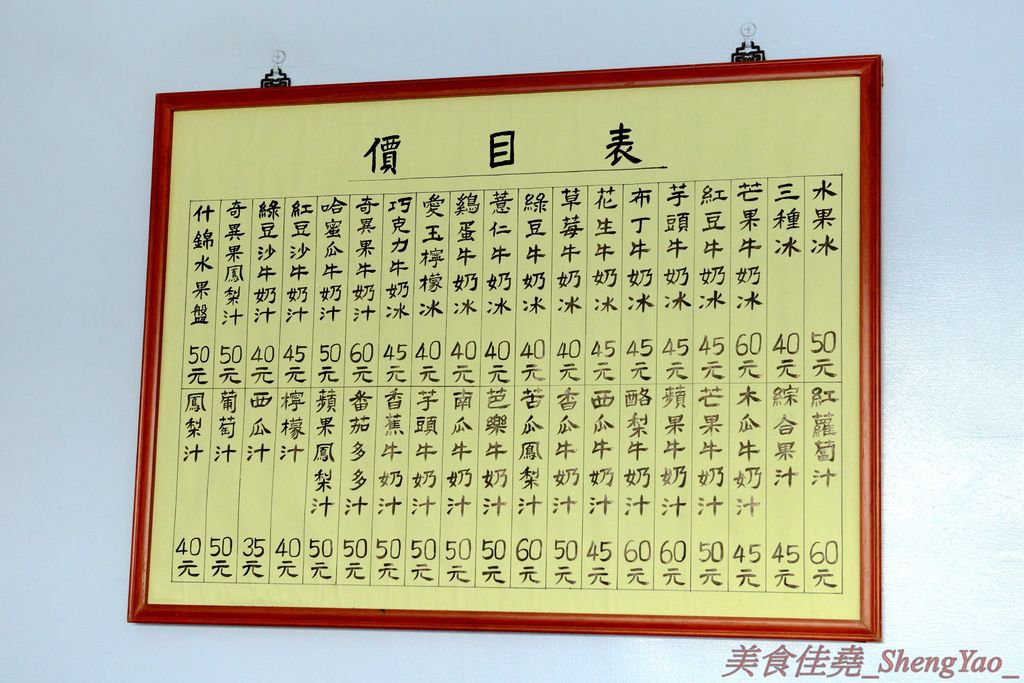 價目表
水果冰 50元
三種冰 40元
芒果牛奶冰 60元
紅豆牛奶冰 45元
芋頭牛奶冰 45元
布丁牛奶冰 45元
花生牛奶冰 45元
草莓牛奶冰 40元
綠豆牛奶冰 40元
薏仁牛奶冰 40元
鷄蛋牛奶冰 40元
愛玉檸檬冰 40元
巧克力牛奶冰 45元
奇異果牛奶汁 60元
哈蜜瓜牛奶汁 50元
紅豆沙牛奶汁 45元
綠豆沙牛奶汁 40元
奇異果鳳梨汁 50元
什錦水果盤 50元
紅蘿蔔汁 60元
綜合果汁 45元
木瓜牛奶汁 45元
芒果牛奶汁 50元
蘋果牛奶汁 60元
酪梨牛奶汁 60元
西瓜牛奶汁 45元
香瓜牛奶汁 50元
苦瓜鳳梨汁 60元
芭樂牛奶汁 50元
南瓜牛奶汁 50元
芋頭牛奶汁 50元
香蕉牛奶汁 50元
番茄多多汁 50元
蘋果鳳梨汁 50元
檸檬汁 40元
西瓜汁 35元
葡萄汁 50元
鳳梨汁 40元
美食佳堯_ShengYao_